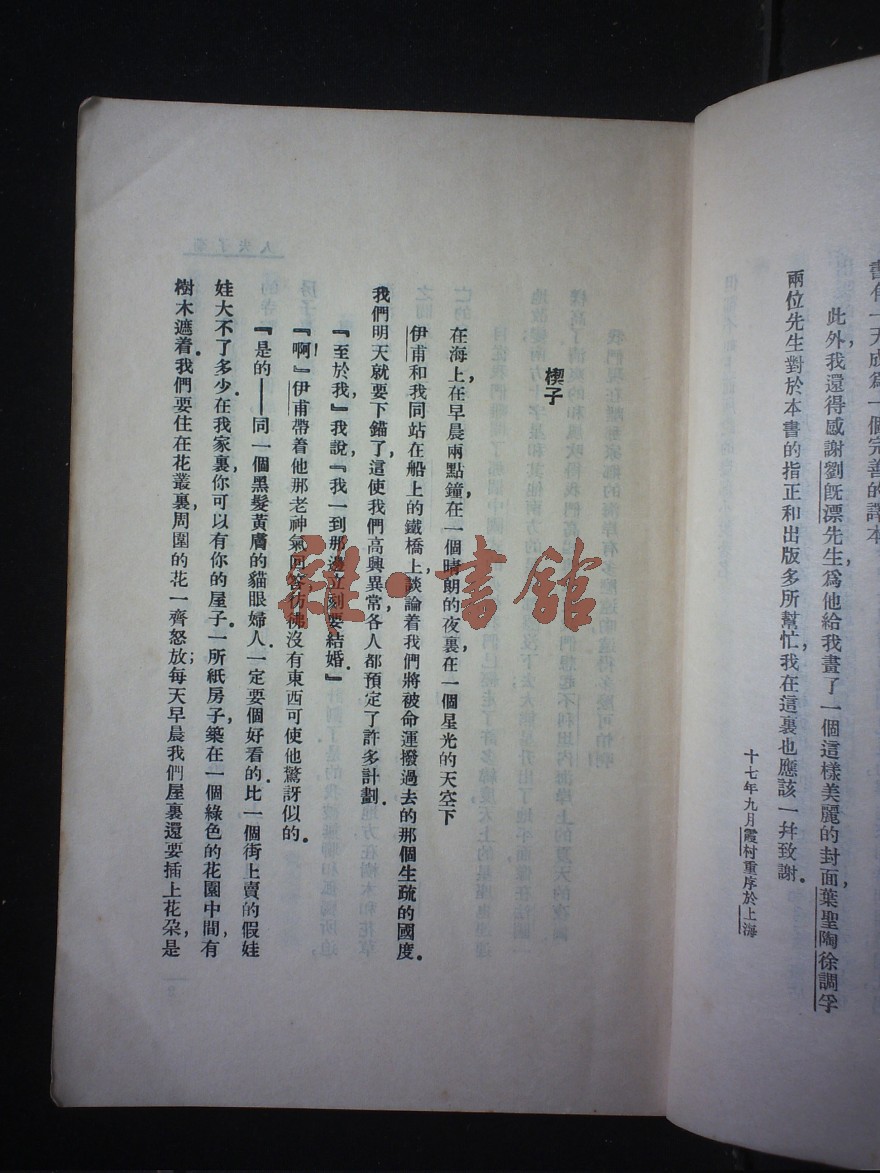 書有一天成爲一個完善的譯本。
此外我還得感謝劉旣漂先生，爲他給我畫了一個這樣美麗的封面，葉聖陶徐調孚
兩位先生對於本書的指正和出版多所幫忙，我在這裏也應該一幷致謝。
十七年九月霞村重序於上海
楔子
在海上在早晨兩點鐘，在一個晴朗的夜裏在一個星光的天空下
伊甫和我同站在船上的鐵橋上，談論着我們將被命運撥過去的那個生疏的國度。
我們明天就要下錨了，這使我們高興異常，各人都預定了許多計劃。
『至於我，』我說，『我一到那邊立刻要結婚。』
『啊！』伊甫帶着他那老神氣回答，彷彿沒有東西可使他驚訝似的。
『是的——同一個黑髮黃膚的貓眼婦人。一定要個好看的。比一個街上賣的假娃
娃大不了多少。在我家裏，你可以有你的屋子。一所紙房子，築在一個綠色的花園中間，有
樹木遮着。我們要住在花叢裏，周圍的花一齊怒放；每天早晨我們屋裏還要插上花朵，是
雜·書館